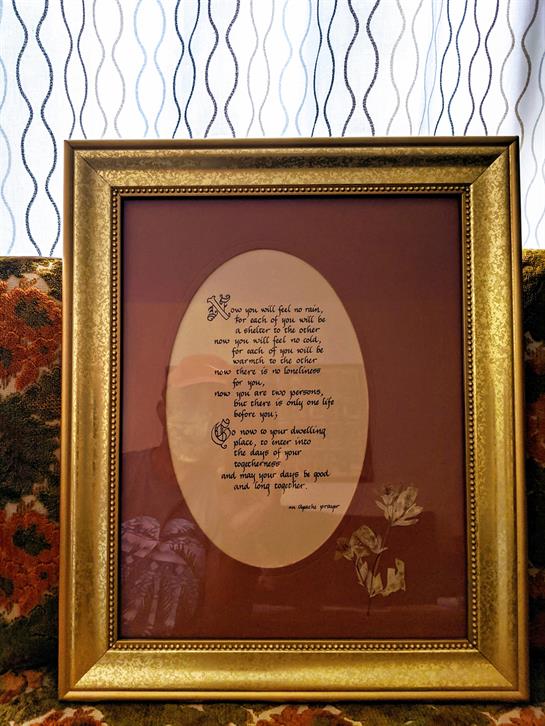 Now you will feel no rain,
for each of you will be
a shelter to the other
now you will feel no cold,
for each of you will be
warmth to the other
now there is no loneliness
for you,
now you are two persons,
but there is only one life
before you;
Go now to your dwelling
place, to enter into
the days of your
togetherness
and may your days be good
and long together.
an Apache prayer